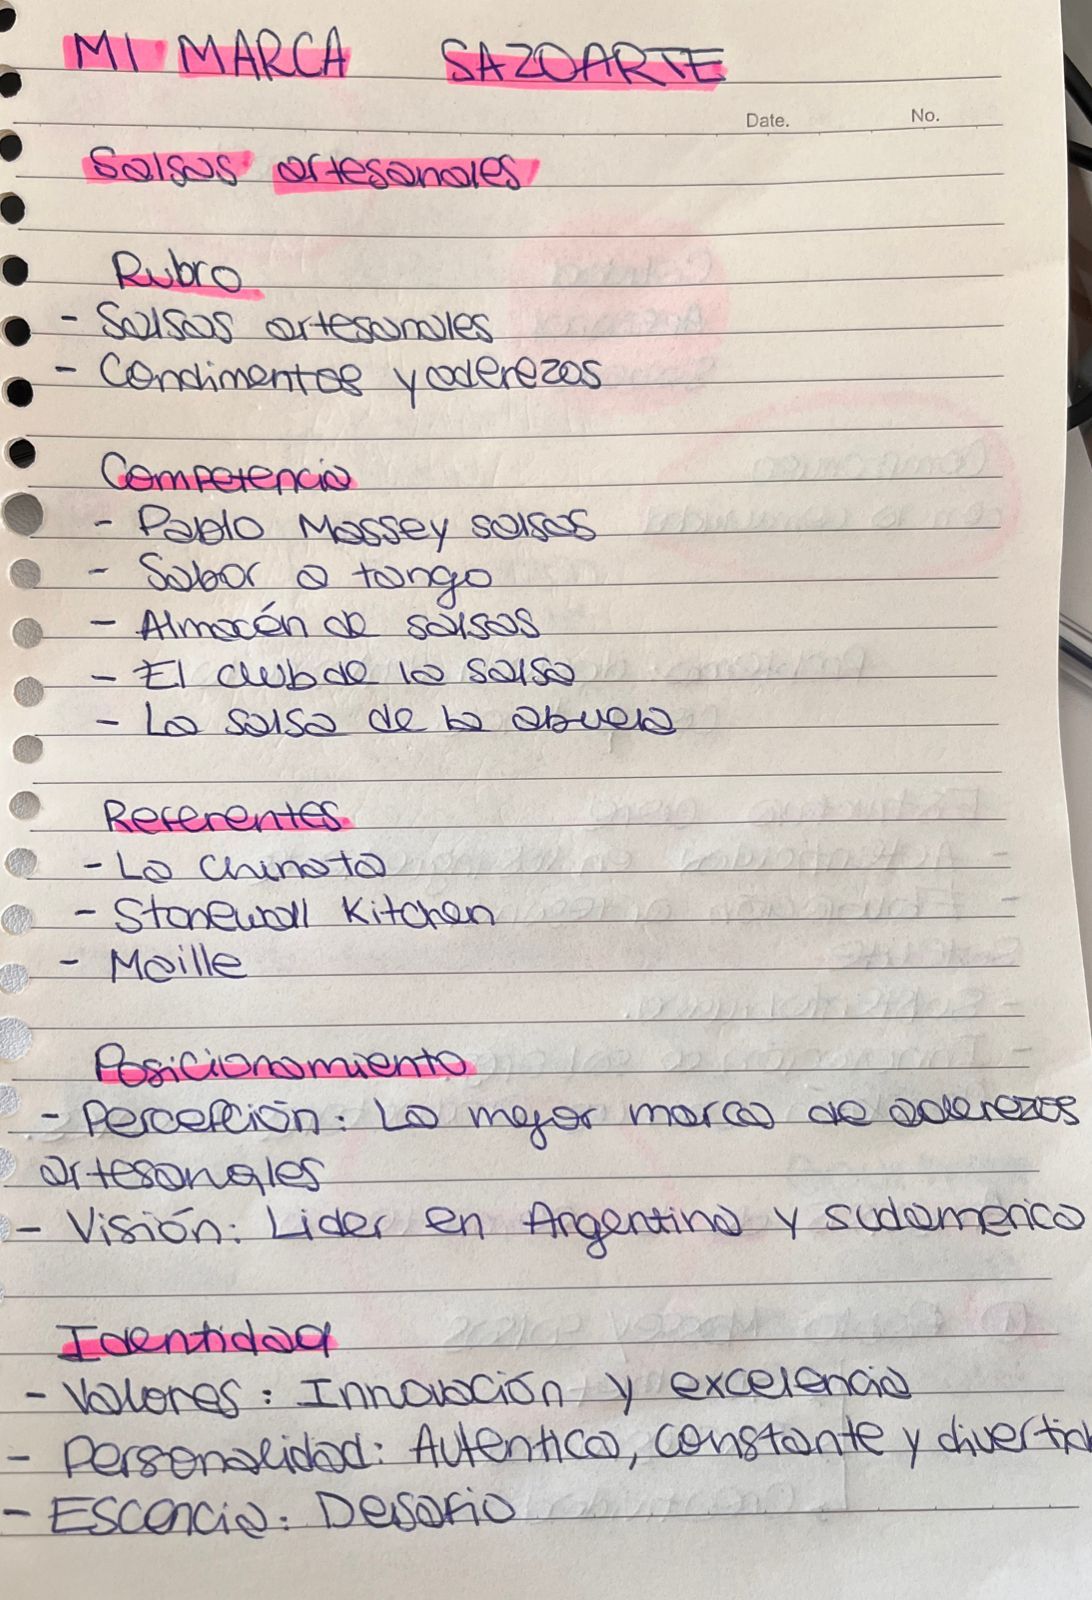 MI MARCA SAZOARTE
Date. No.
Salsas artesanales
Rubro
- Salsas artesanales
- Condimentos y aderezos
Competencia
- Pablo Massey salsas
- Sabor a tango
- Almacén de salsas
- El club de la salsa
- La salsa de la abuela
Referentes
- La Chinata
- Stonewall Kitchen
- Maille
Posicionamiento
- Percepción: La mejor marca de aderezos
artesanales
- Visión: Lider en Argentina y sudamerica
Identidad
- Valores: Innovación y excelencia
- Personalidad: Autentica, constante y diverti
- Escencia: Desafio